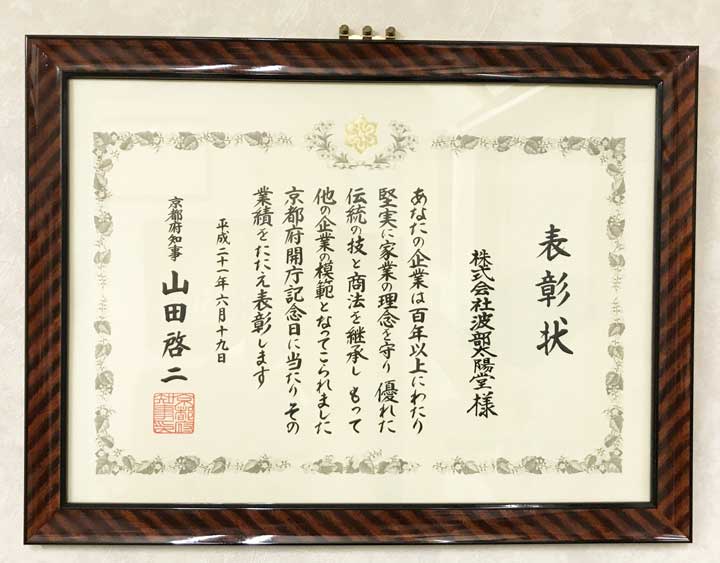 表彰状
株式会社波部太陽堂様
あなたの企業は百年以上にわたり
堅実に家業の理念を守り 優れた
伝統の技と商法を継承し もって
他の企業の模範となってこられました
京都府開庁記念日に当たり その
業績をたたえ表彰します
平成二十一年六月十九日
京都府知事 山田啓二
京都府知事印